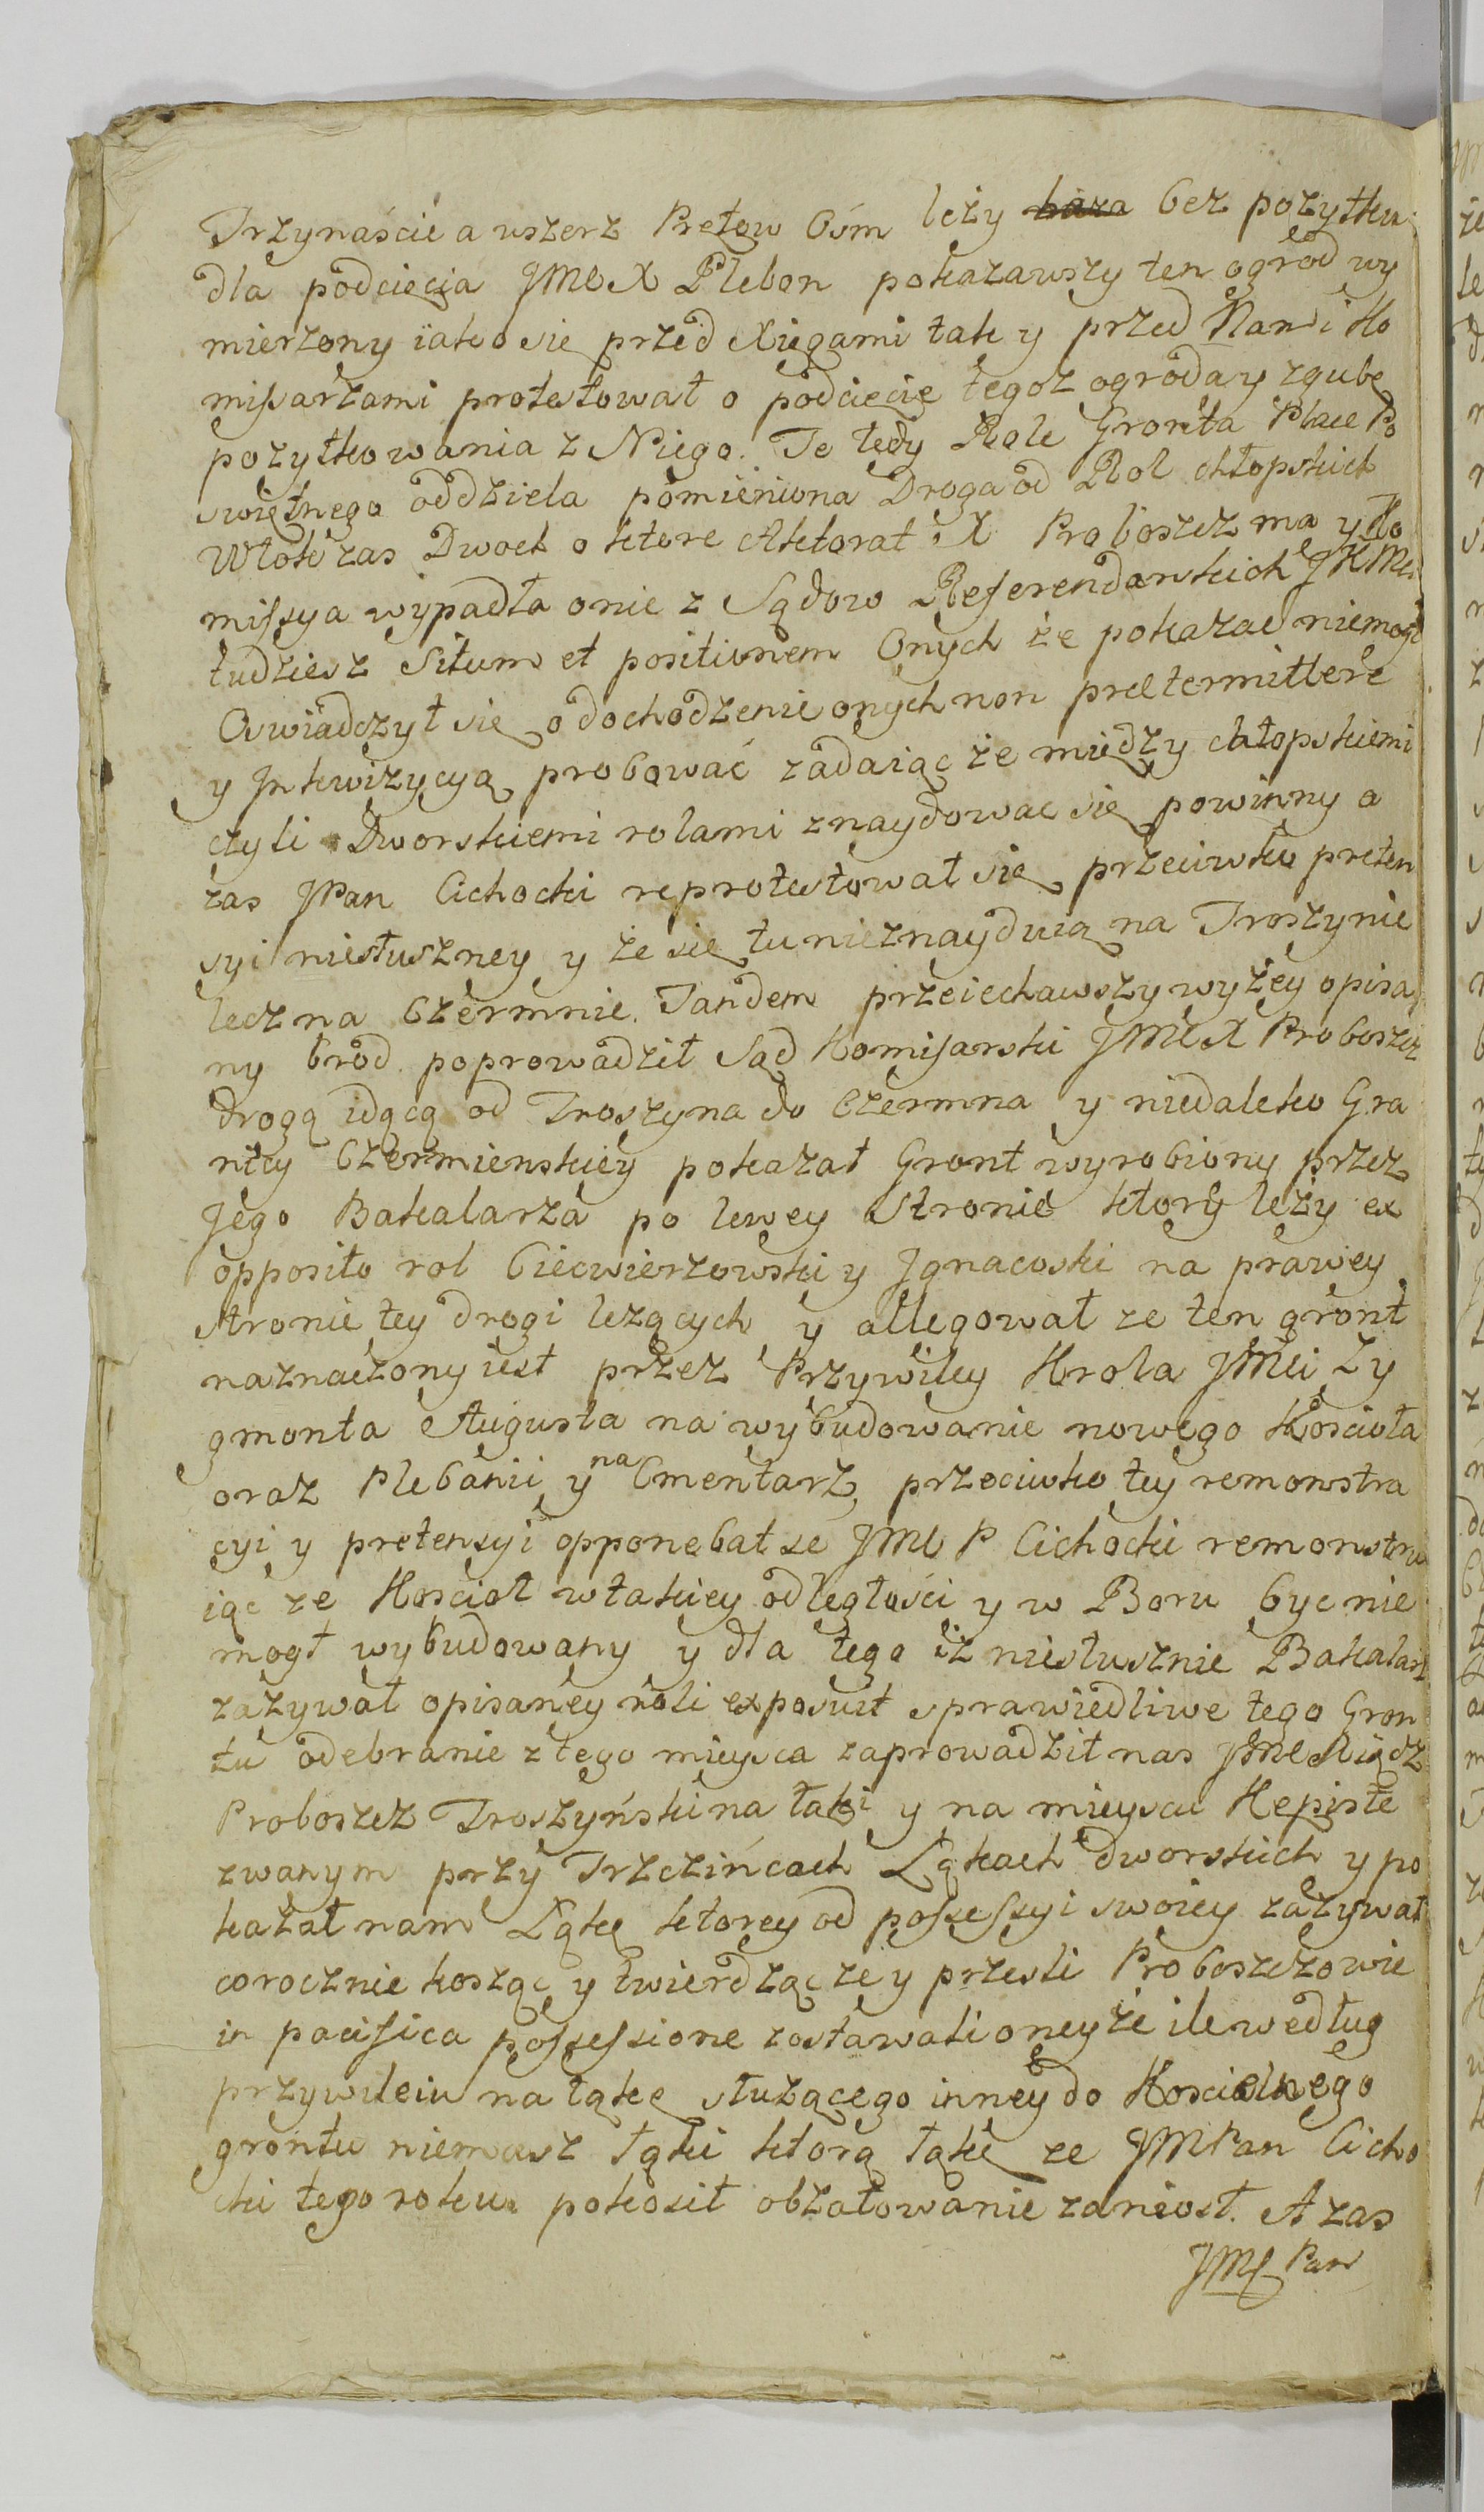 Trzynaście a wszerz Prętow Osm leży baza bez pożytku
dla podcięcia JMC X Pleban pokazawszy ten ogrod wy
mierzony iako się przed Xięgami tak y przed Nami Ko
missarzami protestował o podcięcie tegoż ogroda y zgubę
pożytkowania z Niego. Te tedy Role Gronta Place Po
swiętnego oddziela pomieniona Droga od Rol chłopskich
Włok zas Dwoch o ktore Aktorat X Proboszcz ma y Ko
missya wypadła onie z Sądow Referendarskich JKMci
tudziesz Situm et positionem Onych że pokazać niemogł
Oswiadczył się o dochodzenie onych non pretermittere
y Inkwizycyą probować zadaiąc że między chłopskiemi
czyli Dworskiemi rolami znaydować się powinny a
zas JPan Cichocki reprotestował się przeciwko preten
syi niesłuszney y że się tu nieznayduią na Troszynie
lecz na Czermnie. Tandem przeiechawszy wyżey opisa
ny brod poprowadził Sąd Komisarski JMC X Proboszcz
drogą idącą od Troszyna do Czermna y niedaleko Gra
nicy Czermienskiey pokazał Gront wyrobiony przez
Jego Bakalarza po lewey stronie ktory leży ex
opposito rol Ciecwierzowski y Ignacoski na prawey
stronie tey drogi leżących y allegował ze ten gront
naznaczony iest przez Przywiley Krola JMci Zy
gmonta Augusta na wybudowanie nowego Koscioła
oraz Plebanii y na Cmentarz, przeciwko tey remonstra
cyi y pretensyi opponebat se JMC P Cichocki remonstru
iąc ze Kosciol w takiey odległości y w Boru byc nie
mogł wybudowany y dla tego iz niesłusznie Bakalarz
zażywał opisaney roli exposuit sprawiedliwe tego Gron
tu odebranie z tego mieysca zaprowadził nas JMC Xiądz
Proboszcz Troszyński na łąki y na mieyscu Kepiste
zwanym przy Trzczińcach Łąkach dworskich y po
kazał nam Łąkę ktorey od possessyi swoiey zażywał
corocznie kosząc y twierdząc ze y przesli Proboszczowie
in pacifica possessione zostawali oney że ile według
przywileiu na łąkę służącego inney do Koscielnego
grontu niemasz łąki ktorą łąkę ze JMPan Cicho
cki tego roku pokosił obżałowanie zaniosł. A zas
JMC Pan